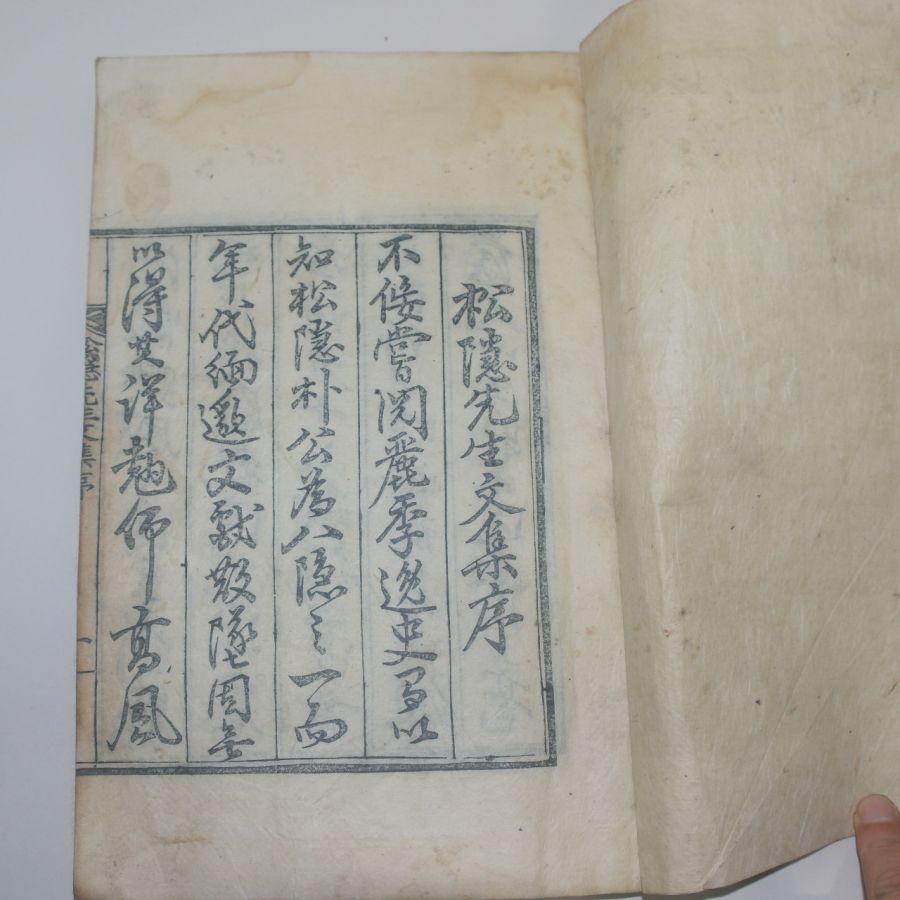 松隱先生文集序
不佞嘗閱麗季逸史有以
知松隱朴公爲八隱之一而
年代緬邈文獻散墜固無
以得其詳翹佇高風
松隱先生文集序
一